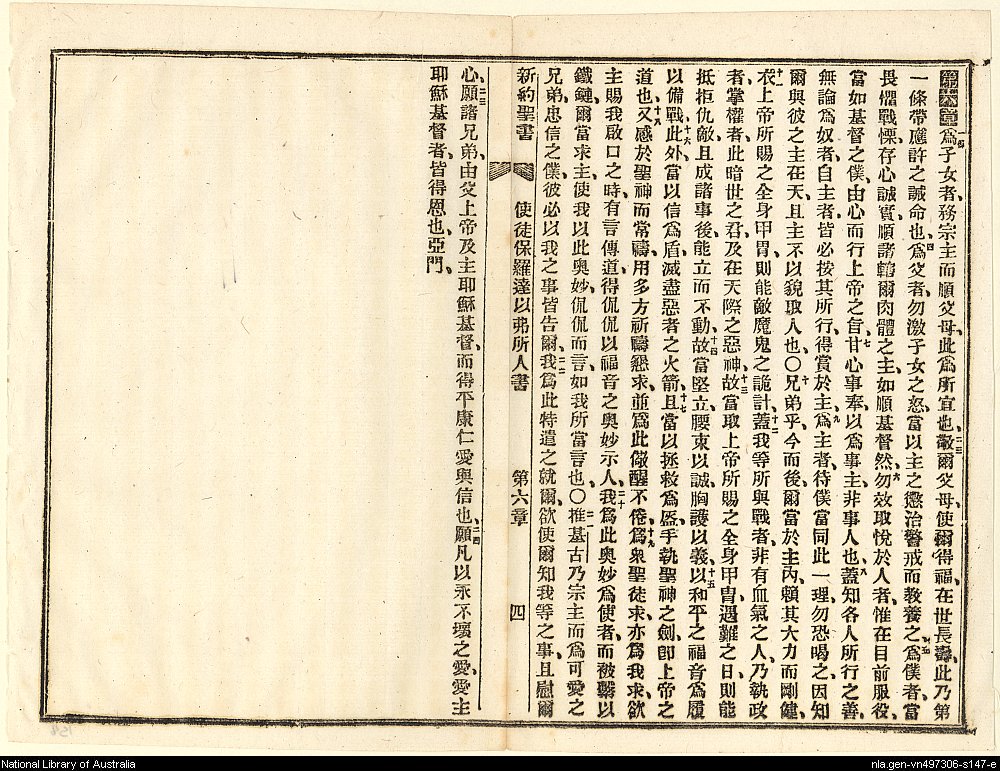 第六章一節爲子女者、務宗主而順父母、此爲所宜也、二三敬爾父母、使爾得福、在世長壽、此乃第
一條帶應許之誡命也、四爲父者、勿激子女之怒、當以主之懲治警戒而敎養之、五爲僕者、當
畏懼戰慄、存心誠實、順諸轄爾肉體之主、如順基督然、六勿效取悅於人者、惟在目前服役、
當如基督之僕、由心而行上帝之旨、七甘心事奉、以爲事主、非事人也、八蓋知各人所行之善、
無論爲奴者、自主者、皆必按其所行、得賞於主、九爲主者、待僕當同此一理、勿恐喝之、因知
爾與彼之主在天、且主不以貌取人也、〇十兄弟乎、今而後、爾當於主內、賴其大力而剛健、
十一衣上帝所賜之全身甲冑、則能敵魔鬼之詭計、十二蓋我等所與戰者、非有血氣之人、乃執政
者、掌權者、此暗世之君、及在天際之惡神、十三故當取上帝所賜之全身甲冑、遇難之日、則能
抵拒仇敵、且成諸事後、能立而不動、十四故當堅立、腰束以誠、胸護以義、十五以和平之福音爲履、
以備戰、十六此外當以信爲盾、滅盡惡者之火箭、十七且當以拯救爲盔、手執聖神之劍、卽上帝之
道也、十八又感於聖神而常禱、用多方祈禱懇求、並爲此儆醒不倦、爲衆聖徒求、十九亦爲我求、欲
主賜我啟口之時、有言傳道、得侃侃以福音之奧妙示人、二十我爲此奧妙爲使者、而被繫以
鐵鏈、爾當求主、使我以此奧妙、侃侃而言、如我所當言也、〇二一推基古乃宗主而爲可愛之
兄弟、忠信之僕、彼必以我之事皆告爾、二二我爲此特遣之就爾、欲使爾知我等之事、且慰爾
新約聖書 使徒保羅達以弗所人書 第六章 四
心、二三願諸兄弟、由父上帝及主耶穌基督、而得平康仁愛與信也、二四願凡以永不壞之愛、愛主
耶穌基督者、皆得恩也、亞門、
National Library of Australia
nla.gen-vn497306-s147-e